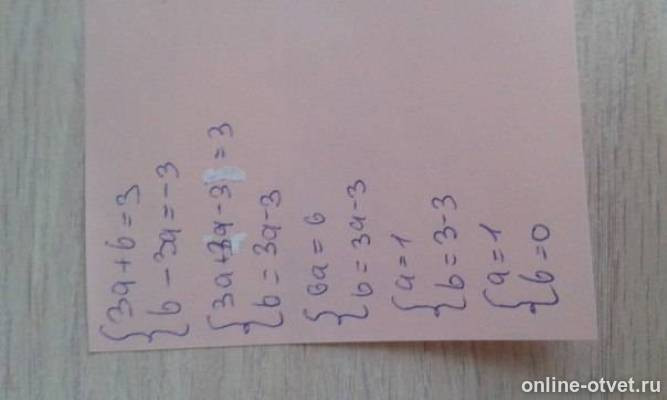 {3a + b = 3
{b - 3a = -3
{3a+3a-3 = 3
{b = 3a-3
{6a = 6
{b = 3a-3
{a = 1
{b = 3-3
{a = 1
{b = 0
online-otvet.ru